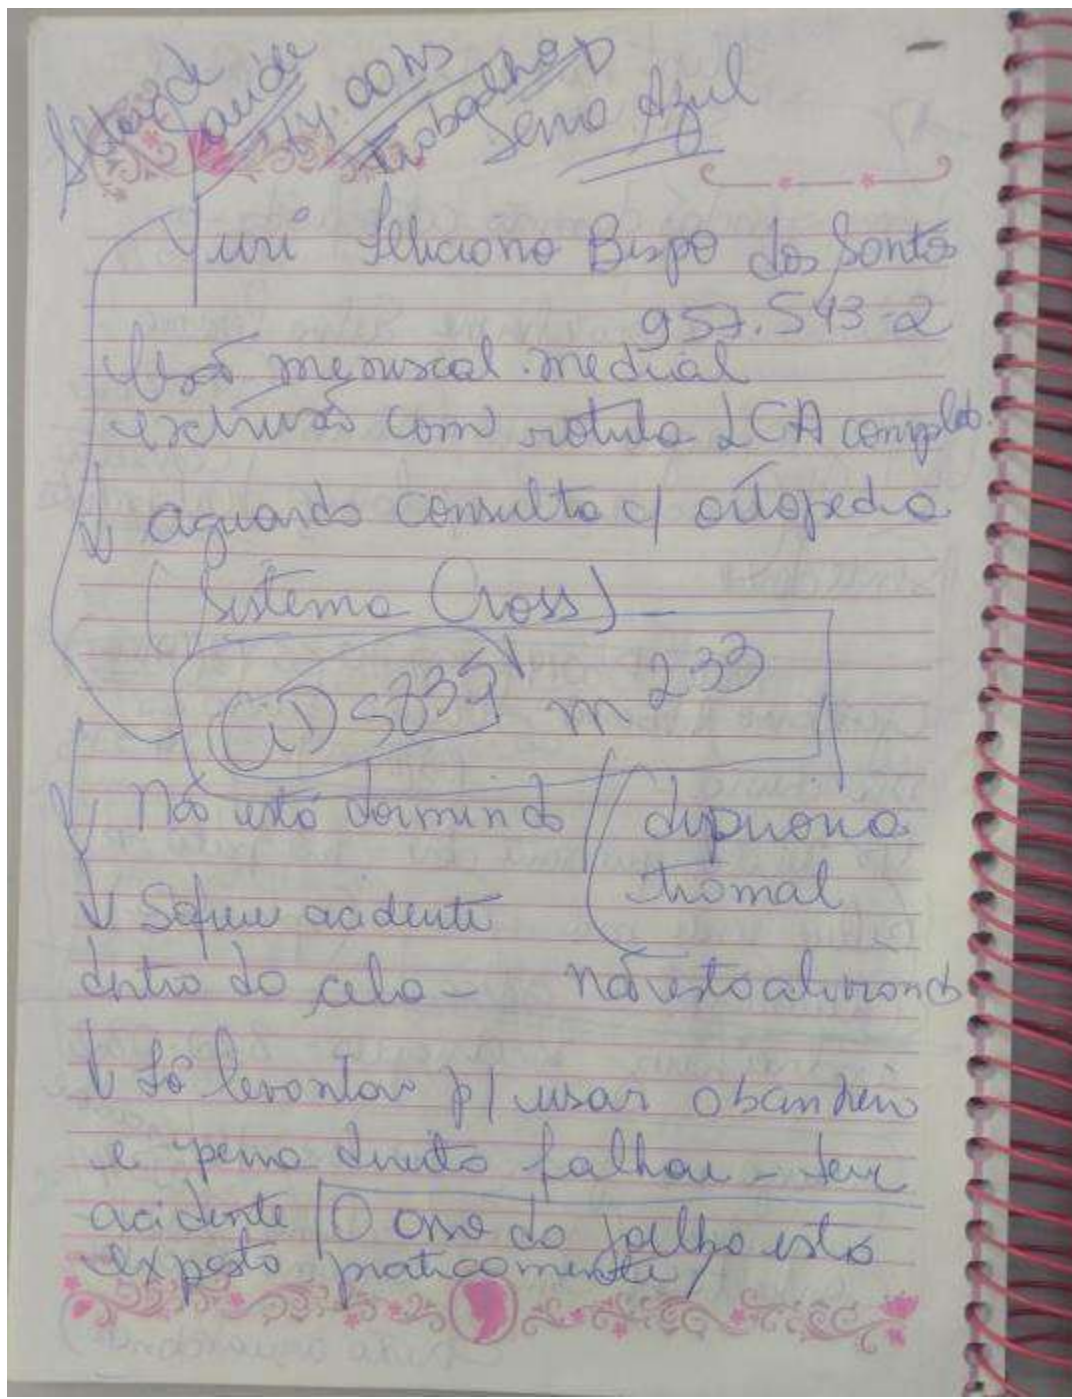 Setor de
saúde
14:00hs
trabalho
Serra Azul
Yuri Feliciano Bispo dos Santos
957.543-2
lesão meniscal. medial
extrusão com rotula LCA completo.
aguardo consulta c/ ortopedia
(Sistema Cross)
CiD S837 m 233
Não está dormindo
dipirona
tramal
Sofreu acidente
dentro da cela -
não está aliviando
Só levantar p/ usar o banheiro
e perna direita falhou - teve
acidente / O osso do joelho está
exposto praticamente /